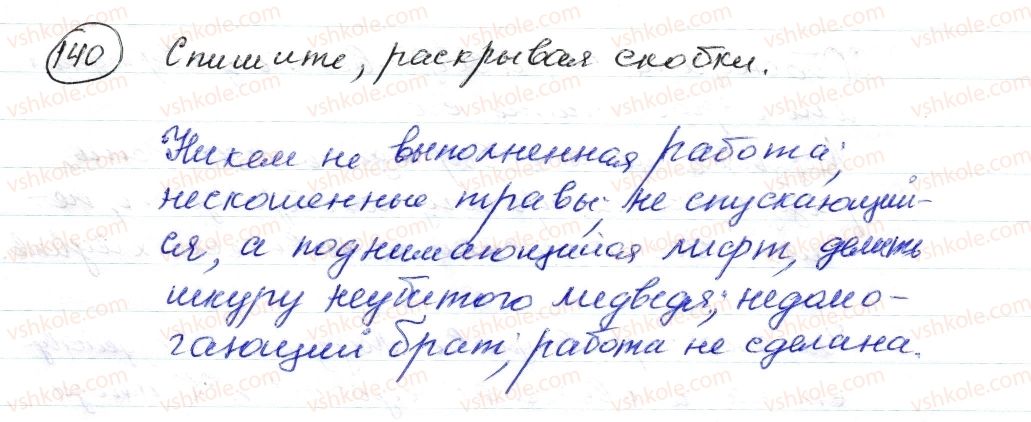 140 Спишите, раскрывая скобки.
Никем не выполненная работа;
нескошенные травы; не спускающий-
ся, а поднимающийся лифт, делить
шкуру неубитого медведя; недомо-
гающий брат; работа не сделана.